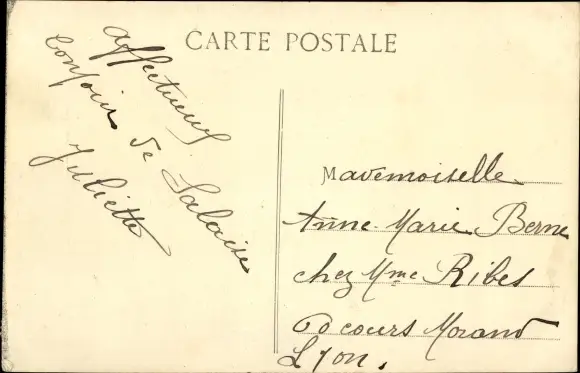 CARTE POSTALE
affectueux
bonjour de Salaise
Juliette
Mademoiselle
Anne-Marie Berne
chez Mme Ribes
60 cours Morand
Lyon.